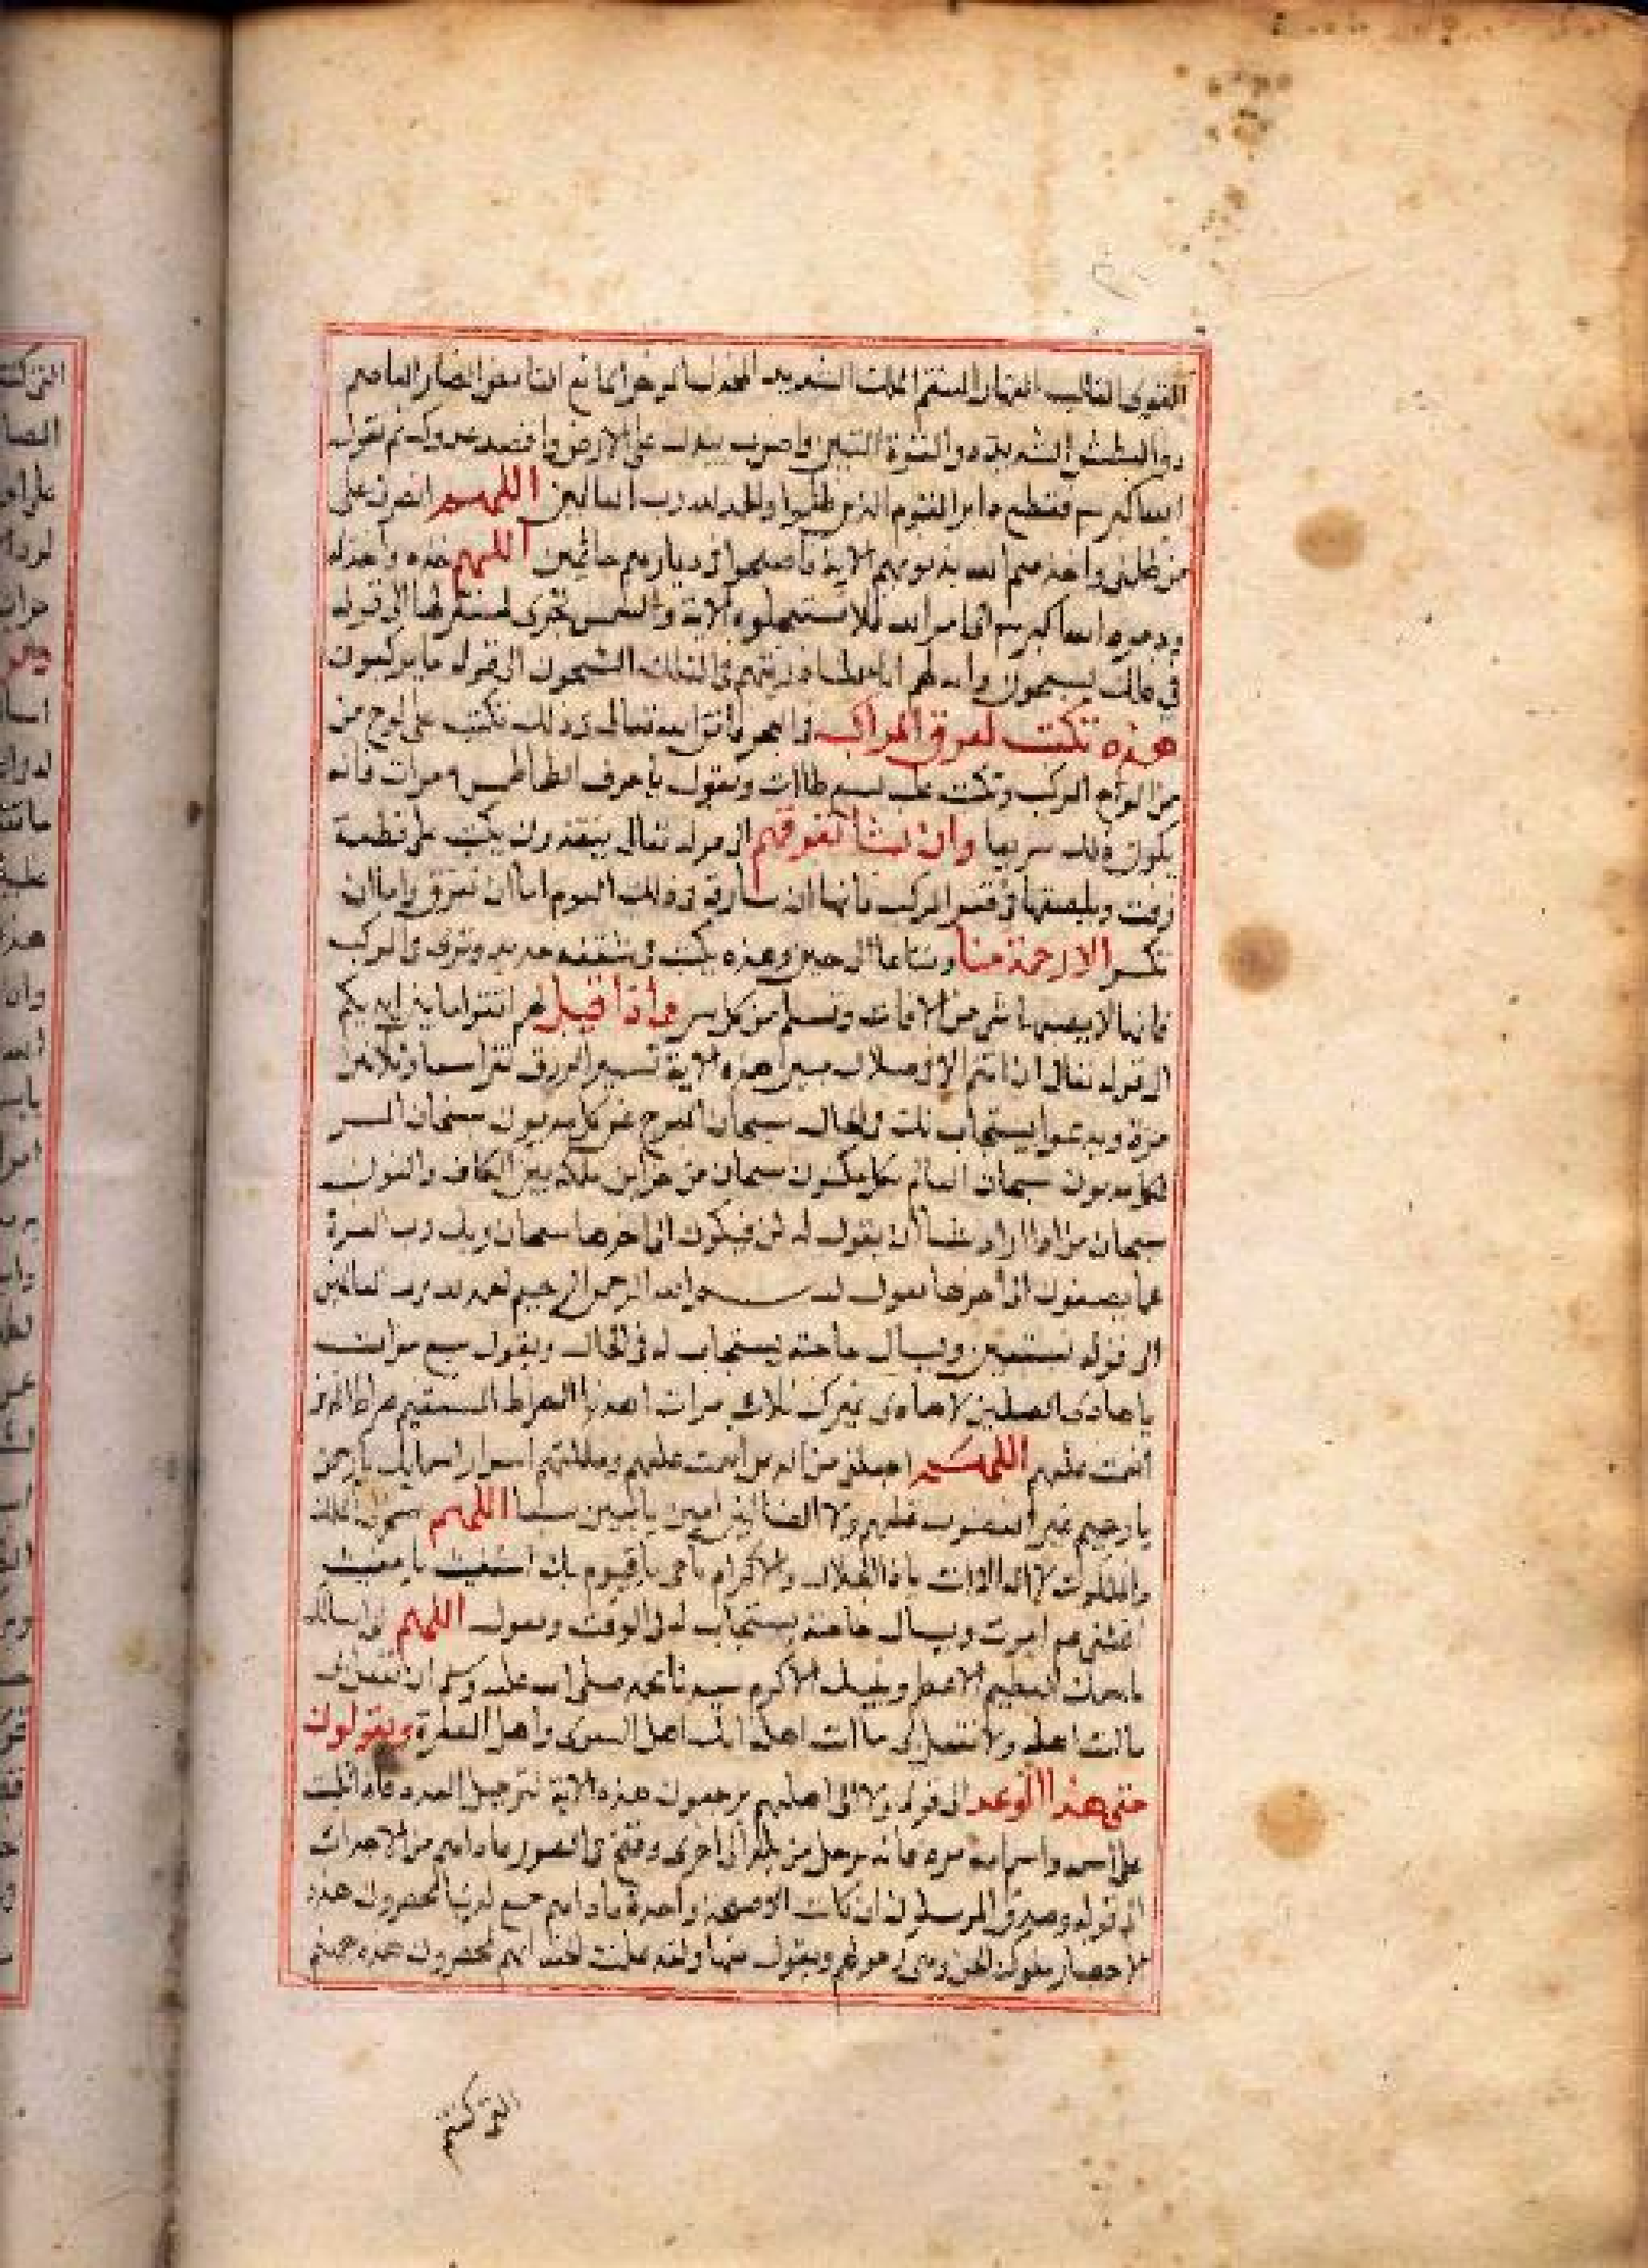 القوى الغالب القهار المنتقم المهلك الشديد المذل المانع القابض الضار القاصم
ذو البطش الشديد ذو القوة المتين واضرب بيدك على الارض واقصد عدوك ثم تقول
الله اكبر فقطع دابر القوم الذين ظلموا والحمد لله رب العالمين اللهم انصرنى على
من ظلمنى واخذهم الله بذنوبهم الاية فاصبحوا فى ديارهم جاثمين اللهم خذه واخذله
ودمره الله اكبر اتى امر الله فلا تستعجلوه الاية والشمس تجرى لمستقر لها الى قوله
فى فلك يسبحون واية لهم انا حملنا ذريتهم فى الفلك المشحون الى قوله ما يركبون
هذه تكتب لغرق المراكب فى البحر فاتق الله تعالى وذلك تكتب على لوح من
من الواح المركب وتكتب عليه سبع طاات وتقول يا حرف الطا مرات فانه
يكون ذلك سريعا وان نشا نغرقهم الى قوله تعالى ينقذون يكتب على قطعة
زفت ويلصقها فى قعر المركب فانها ان سارت فى ذلك اليوم اما ان تغرق واما ان
تكسر الا رحمة منا ومتاعا الى حين وهذه يكتب فى شقفة حديد وترمى فى المركب
فانها لا يصيبها شى من الافات وتسلم من كل سر واذا قيل لهم اتقوا ما بين ايديكم
الى قوله تعالى ان انتم الا فى ضلال مبين هذه الاية تسير الرزق تقرا سبعا وثلاثين
مرة ويدعوا يستجاب له فى الحال سبحان المفرج عن كل مديون سبحان المسر
لكل مديون سبحان العالم بكل مكنون سبحان من خزاين ملكه بين الكاف والنون
سبحان من اذا اراد شيا ان يقول له كن فيكون الى اخرها سبحان ربك رب العزة
عما يصفون الى اخرها بسم الله الرحمن الرحيم الحمد لله رب العالمين
الى قوله نستعين ويسال حاجته يستجاب له فى الحال ويقول سبع مرات
يا هادى المضلين لا هادى غيرك ثلاث مرات اهدنا الصراط المستقيم صراط الذين
انعمت عليهم اللهم اجعلنى من الذين انعمت عليهم وعلمتهم اسرار اسمايك يا رحمن
يا رحيم غير المغضوب عليهم ولا الضالين امين يا مبين سبعا اللهم سخر لى الملك
والملكوت لا اله الا انت يا ذا الجلال والاكرام يا حى يا قيوم بك استغيث يا مغيث
اغثنى ويسال حاجته يستجاب له فى الوقت ويقول اللهم انى اسالك
العظيم الاعظم ونبيك الاكرم سيدنا محمد صلى الله عليه وسلم ان تفعل لى
ما انت اهله ولا تفعل بى ما انت اهل التقوى واهل المغفرة ويقولون
متى هذا الوعد الى قوله ولا الى اهلهم يرجعون هذه الاية لترحيل العدو فاذا تليت
على اسمه واسم امه مره فانه يرحل من بلد الى اخرى ونفخ فى الصور فاذا هم من الاجداث
الى قوله وصدق المرسلون ان كانت الا صيحة واحدة فاذا هم جميع لدينا محضرون هذه
لاحضار ملوك الجن ويقول ولقد علمت الجنة انهم لمحضرون هذه جهنم
التى كنتم